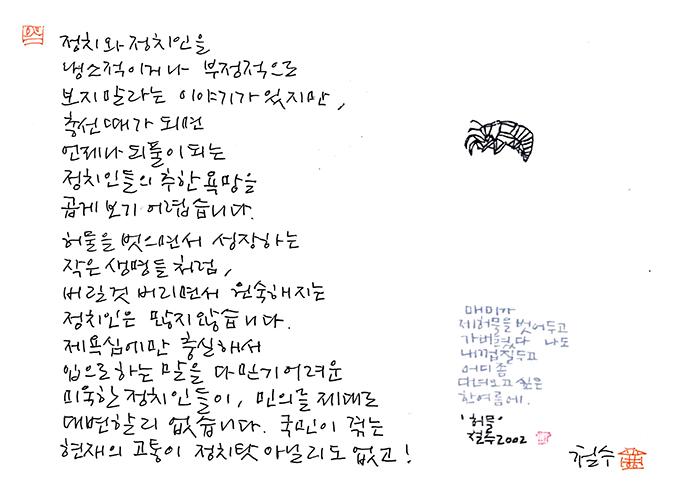 정치와 정치인을
냉소적이거나 부정적으로
보지말라는 이야기가 있지만,
총선때가 되면
언제나 되풀이되는
정치인들의 추한 욕망을
곱게 보기 어렵습니다.
허물을 벗으면서 성장하는
작은 생명들처럼,
버릴것 버리면서 원숙해지는
정치인은 많지않습니다.
제욕심에만 충실해서
입으로하는 말을 다 믿기 어려운
미욱한 정치인들이, 민의를 제대로
대변할리 없습니다. 국민이 겪는
현재의 고통이 정치탓 아닐리도 없고!
매미가
제허물을 벗어두고
가버렸다 나도
내껍질두고
어디 좀
다녀오고 싶은
한여름에.
'허물'
철수 2002
철수